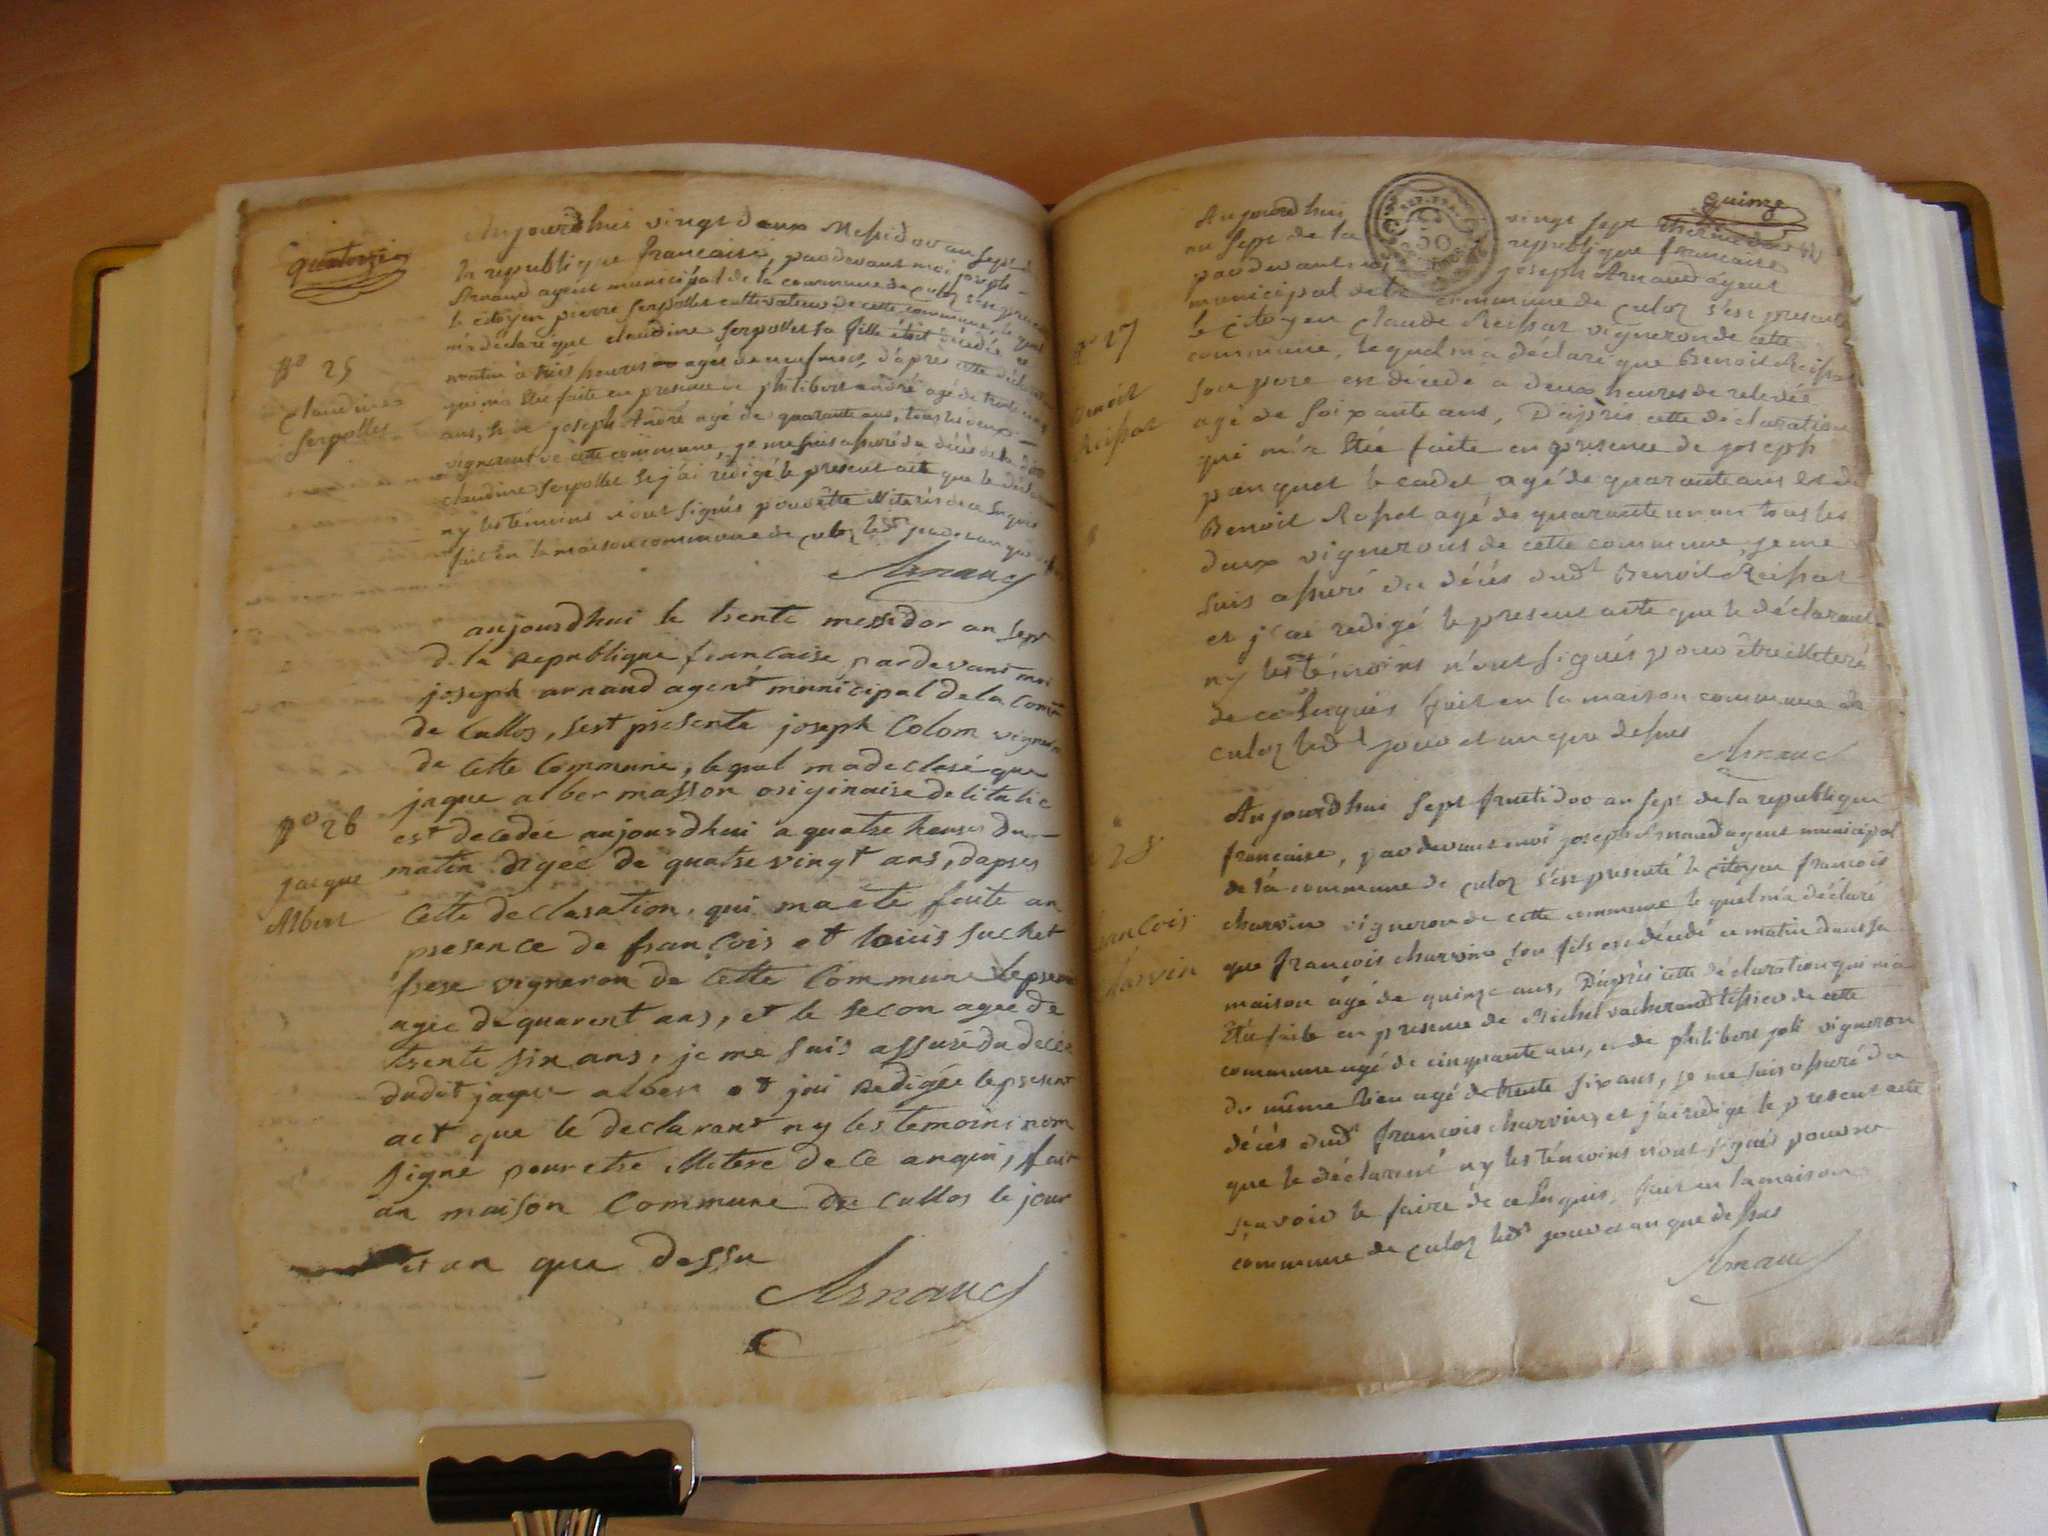 quatorze
Aujourdhui vingt deux Messidor an sept de
la republique francaise, pardevant moi joseph
Arnaud agent municipal de la commune de culoz s'est presenté
le citoyen pierre serpollet cultivateur de cette commune, le quel
m'a déclaré que claudine serpollet sa fille étoit décédée ce
matin à trois heures agée de neuf mois, d'apres cette déclaration
qui m'a été faite en presence de philibert André agé de trente
ans, & de joseph André agé de quarante ans, tous les deux
vignerons de cette commune, je me suis assuré du décès de la
claudine serpollet & j'ai redigé le present acte que le déclarant
ny les témoins n'ont signés pour être illiterés de ce enquis
fait en la maison commune de culoz les dt jour et an que
Arnaud
No 25
claudine
serpollet
aujourdhui le trente messidor an sept
de la republique francaise pardevant moi
joseph arnaud agent municipal de la Comm
de Cullos, sest presente joseph Colom vigneron
de cette Commune, lequal ma declaré que
jaque alber masson originaire de litalie
est decedée aujourdhui a quatre heures du
matin agée de quatre vingt ans, dapres
Cette declaration, qui ma été faite an
presence de françois et louis suchet
frere vigneron de Cette Commune le premie
agée de quarent ans, et le secon agée de
trente six ans, je me suis assuré du decée
dudit jaque alber et jai redigée le present
act que le declarant ny les temoins non
signé pour etre illitere de Ce anquis, fait
an maison Commune de Cullos le jour
et an que dessu
Arnaud
No 26
jacque
Albert
quinze
Aujourdhui vingt sept thermidor
an sept de la republique francaise
pardevant moi joseph Arnaud agent
municipal de la commune de culoz s'est presenté
le citoyen claude Reissat vigneron de cette
commune, lequel m'a déclaré que Benoit Reissat
son pere est décédé à deux heures de relevée
agé de soixante ans, D'apres cette déclaration
qui m'a été faite en presence de joseph
panguet le cadet agé de quarante ans et de
Benoit Rosset agé de quarante un an tous les
deux vignerons de cette commune, je me
suis assuré du décés dudt Benoit Reissat
et j'ai redigé le present acte que le déclarant
ny les témoins n'ont signés pour être illiterés
de ce enquis fait en la maison commune de
culoz les dt jour et an que dessus
Arnaud
No 27
Benoit
Reissat
Aujourdhui sept fructidor an sept de la republique
francaise, pardevant moi joseph Arnaud agent municipal
de la commune de culoz s'est presenté le citoyen francois
charvin vigneron de cette commune le quel m'a déclaré
que francois charvin son fils est décédé ce matin dans sa
maison âgé de quinze ans, D'après cette déclaration qui m'a
été faite en presence de Michel vacherand tessier de cette
commune agé de cinquante ans, et de philibert joli vigneron
du même lieu agé de trente six ans, je me suis assuré du
décés dudt francois charvin, et j'ai redigé le present acte
que le déclarant ny les témoins n'ont signés pour ne
sçavoir le faire de ce enquis, fait en la maison
commune de culoz les dt jour et an que dessus
Arnaud
28
francois
charvin